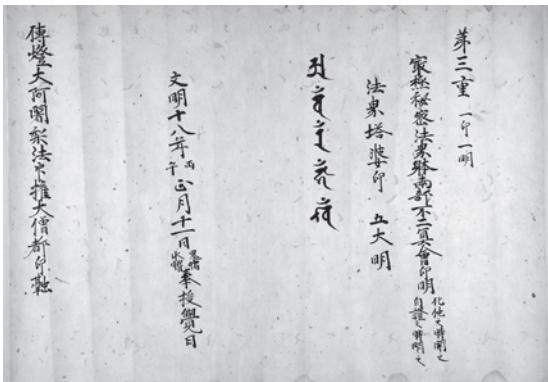 第三重 一印一明
最極秘密法界躰両部不二冥會印明 化他之時開之 自證之時
法界塔婆印 五大明
文明十八年丙午正月十一日鬼宿水曜奉授覺日
傳燈大阿闍梨法印権大僧都印融